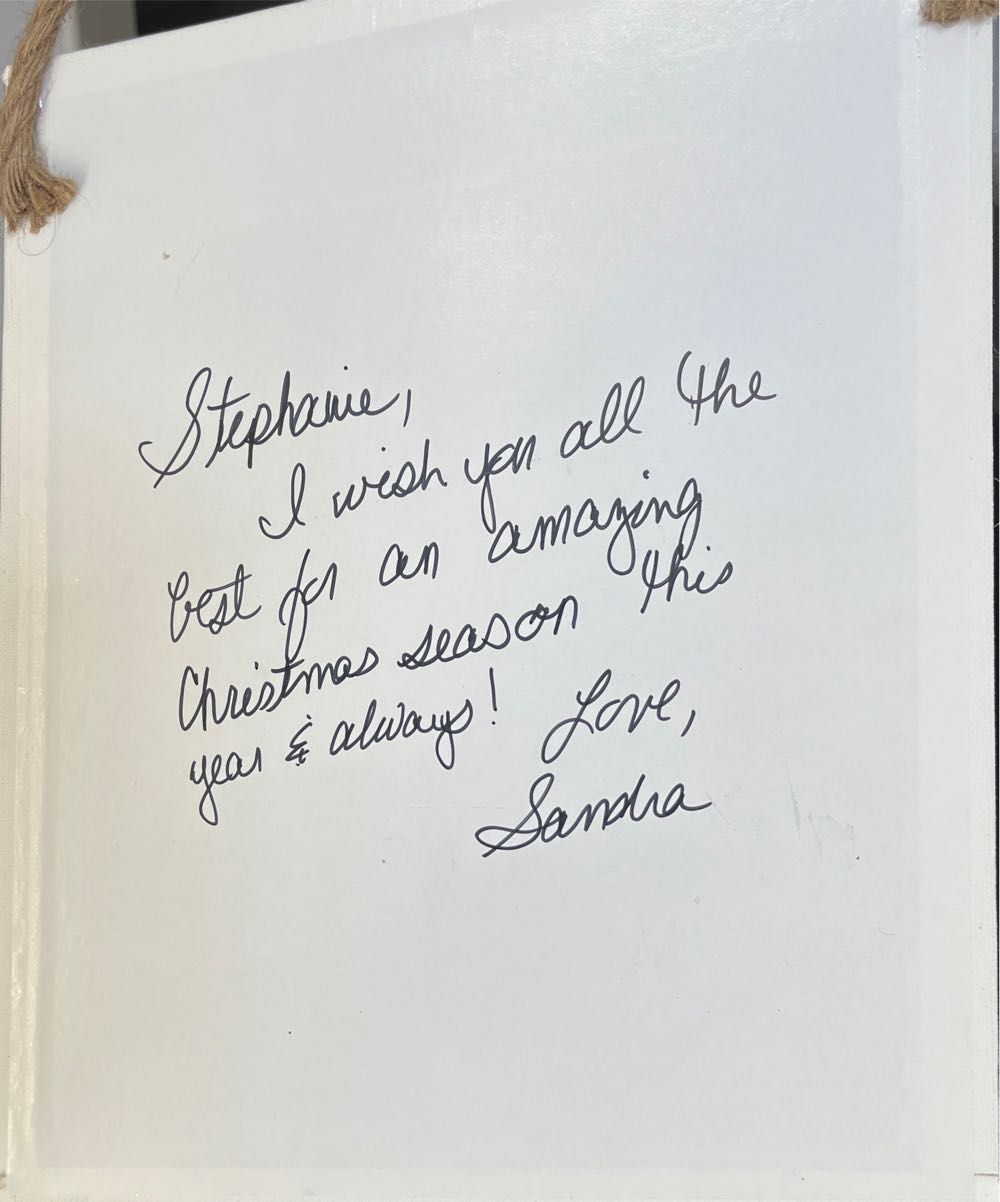 Stephanie,
I wish you all the
best for an amazing
Christmas season this
year & always!
Love,
Sandra